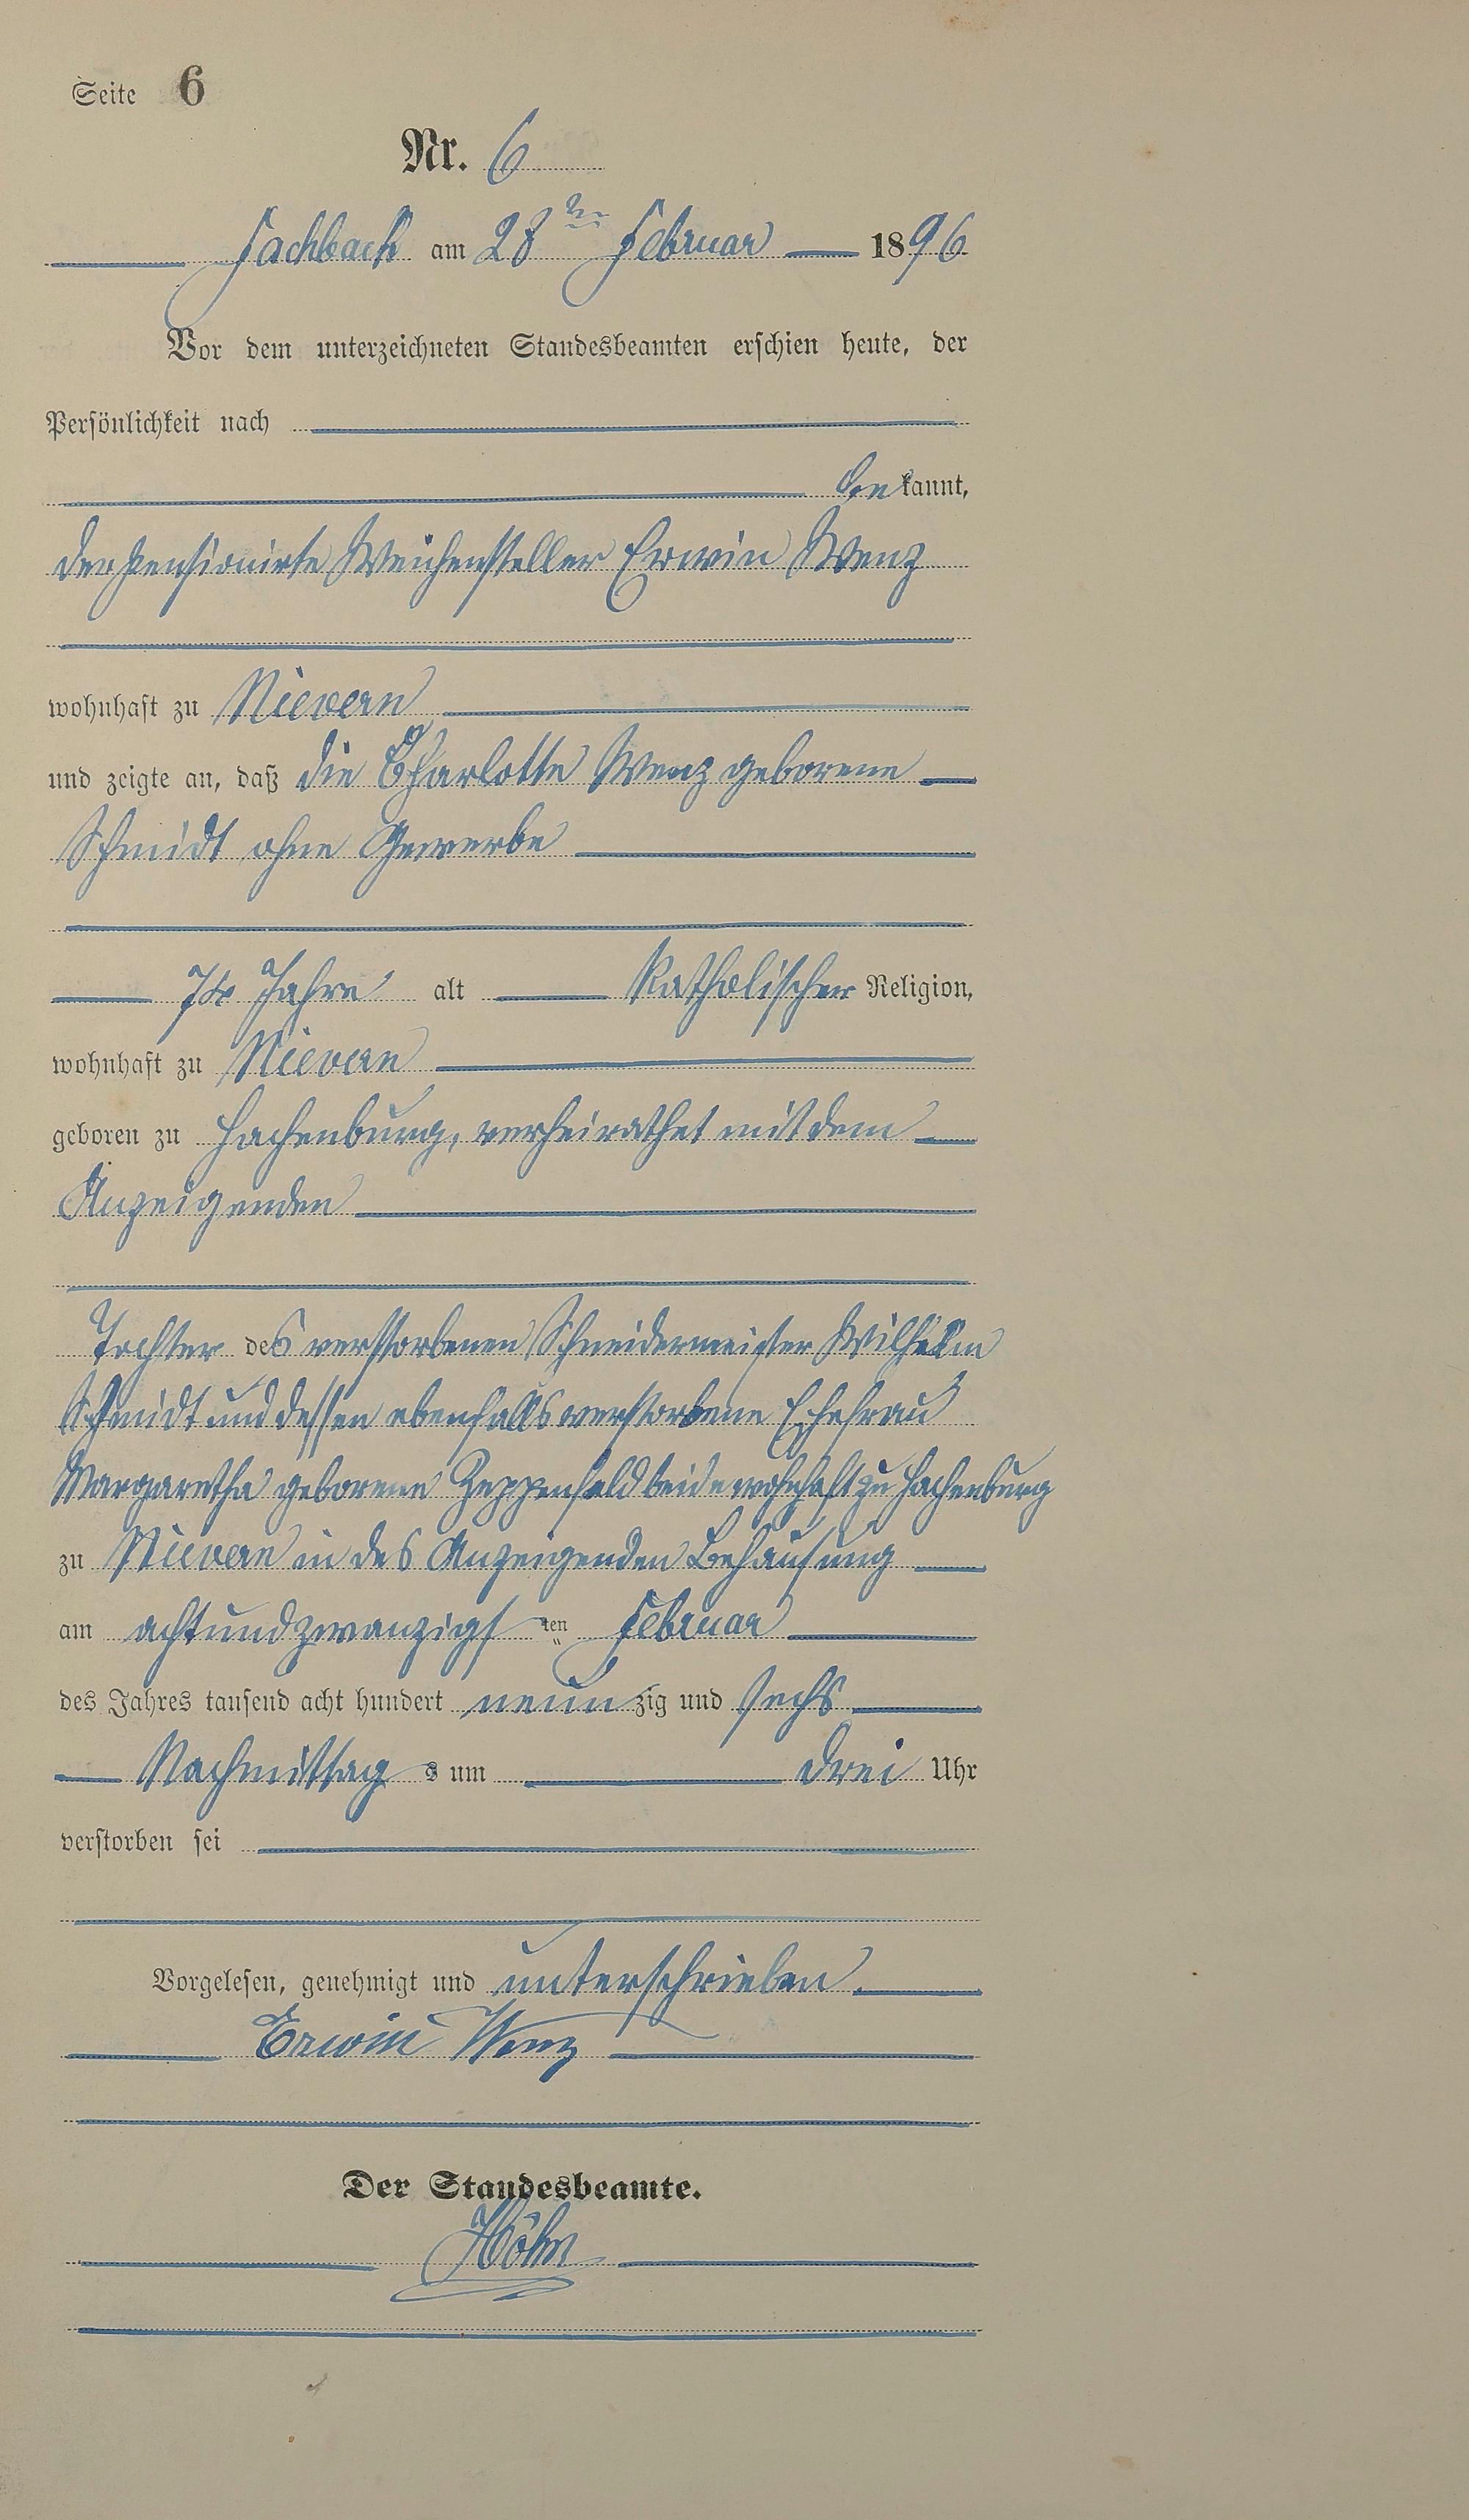 Seite 6
Nr. 6
Fachbach am 28ten Februar 1896
Vor dem unterzeichneten Standesbeamten erschien heute, der
Persönlichkeit nach
bekannt,
der pensionirte Weichensteller Erwin Wenz
wohnhaft zu Nievern
und zeigte an, daß die Charlotte Wenz geborene
Schmidt ohne Gewerbe
74 Jahre alt katholischer Religion,
wohnhaft zu Nievern
geboren zu Hachenburg, verheirathet mit dem
Anzeigenden
Tochter des verstorbenen Schneidermeister Wilhelm
Schmidt und dessen ebenfalls verstorbene Ehefrau
Margaretha geborene Zeppenfeld beide wohnhaft zu Hachenburg
zu Nievern in des Anzeigenden Behausung
am achtundzwanzigsten Februar
des Jahres tausend acht hundert neunzig und sechs
Nachmittags um drei Uhr
verstorben sei
Vorgelesen, genehmigt und unterschrieben.
Erwin Wenz
Der Standesbeamte.